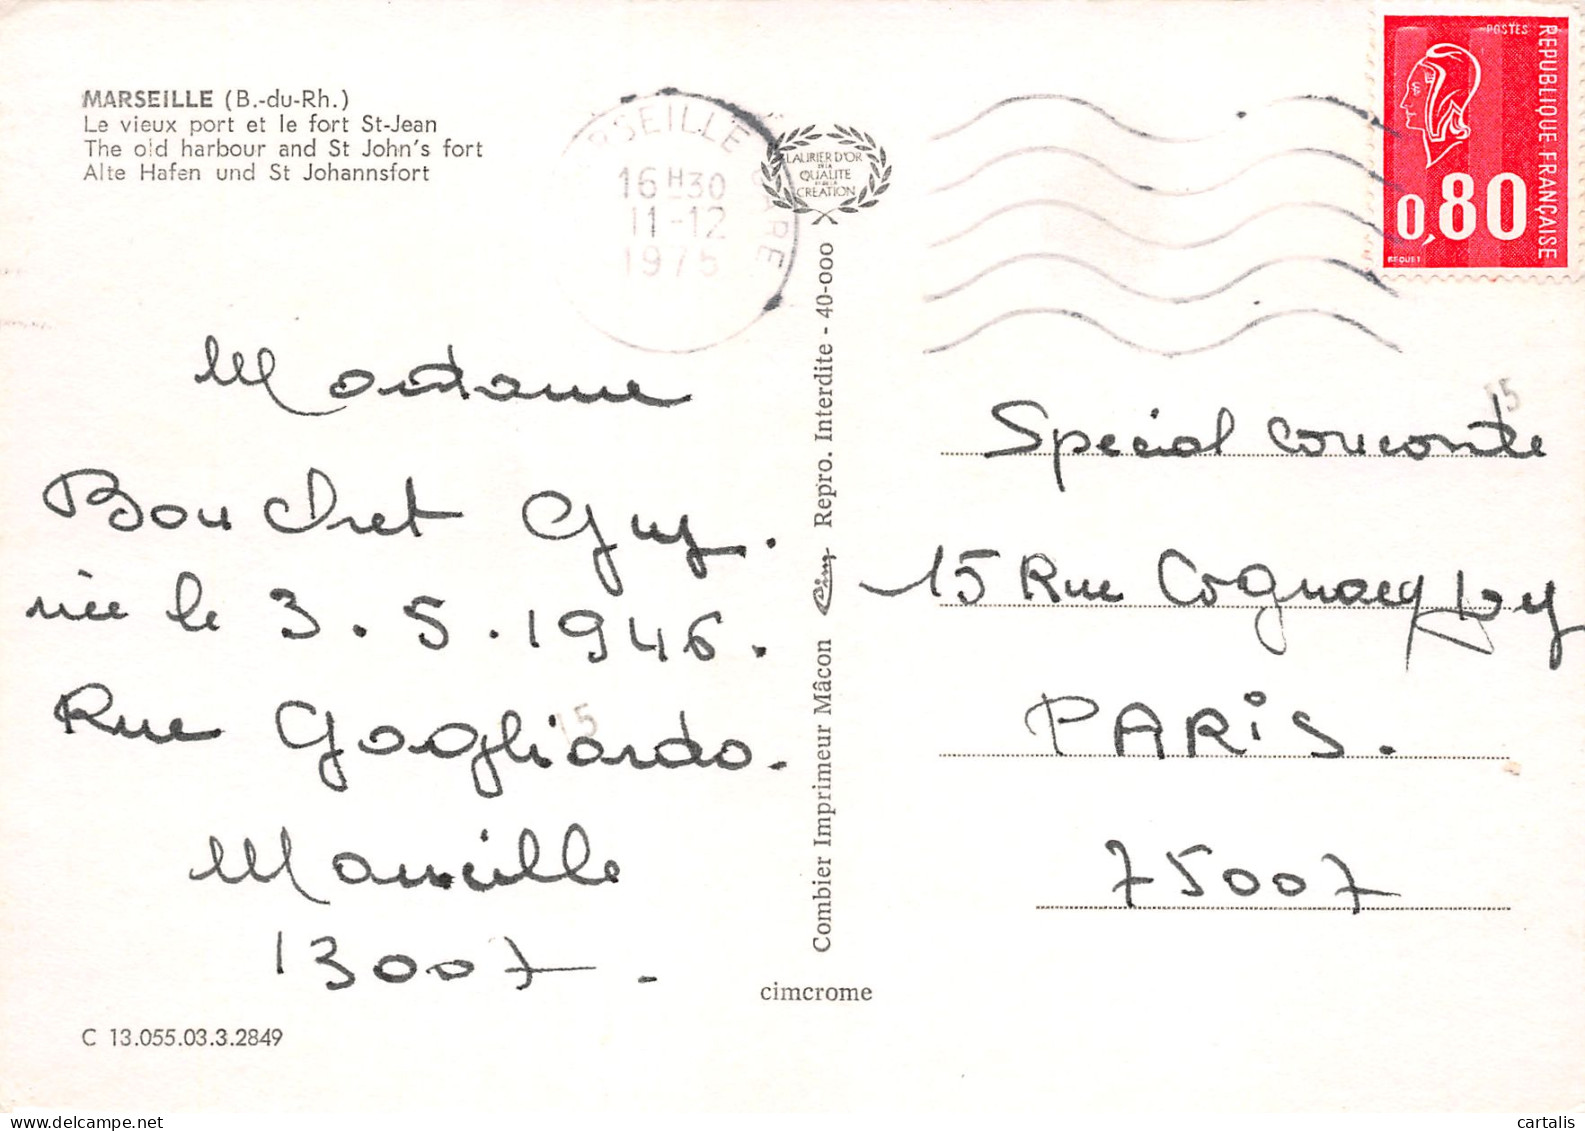 MARSEILLE (B.-du-Rh.)
Le vieux port et le fort St-Jean
The old harbour and St John's fort
Alte Hafen und St Johannsfort
RSEILLE GARE
16 H30
11-12
1975
LAURIER D'OR
DE LA
QUALITE
ET DE LA
CREATION
POSTES
REPUBLIQUE FRANÇAISE
0,80
BEQUET
Madame
Bouchet Guy.
née le 3.5.1946.
Rue Gagliardo.
Marseille
13007.
15
C 13.055.03.3.2849
Combier Imprimeur Mâcon Cim Repro. Interdite - 40-000
cimcrome
15
Special
15 Rue Cognacq Jay
PARIS.
75007
cartalis